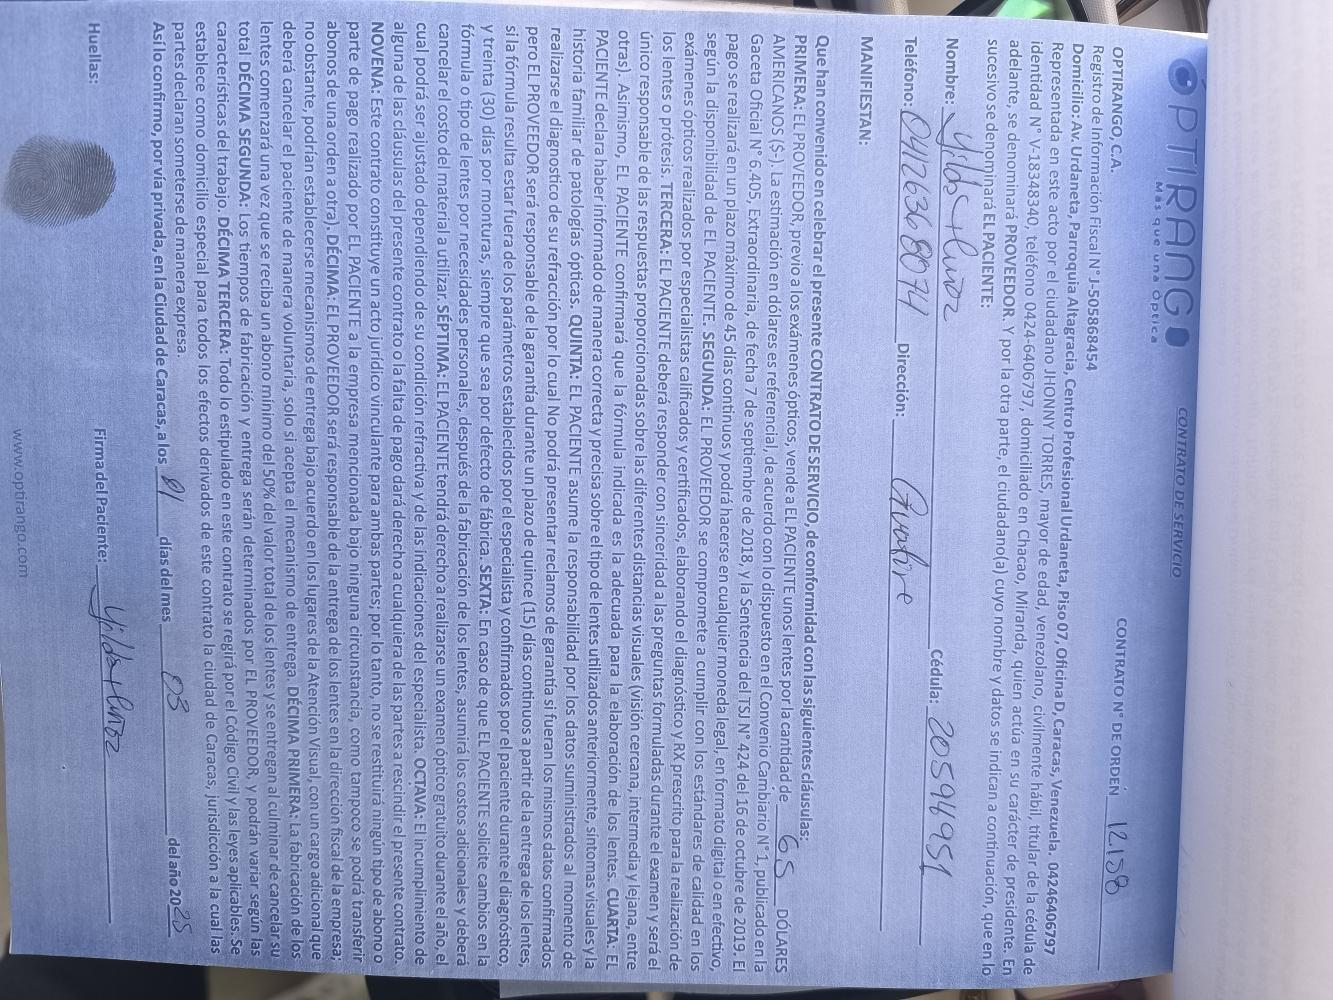 ÓPTIRANGO
Más que una Óptica
CONTRATO DE SERVICIO
CONTRATO N° DE ORDEN 12158
OPTIRANGO, C.A.
Registro de Información Fiscal N° J-505868454
Domicilio: Av. Urdaneta, Parroquia Altagracia, Centro Profesional Urdaneta, Piso 07, Oficina D, Caracas, Venezuela. 04246406797
Representada en este acto por el ciudadano JHONNY TORRES, mayor de edad, venezolano, civilmente hábil, titular de la cédula de
identidad N° V-18348340, teléfono 0424-6406797, domiciliado en Chacao, Miranda, quien actúa en su carácter de presidente. En
adelante, se denominará PROVEEDOR. Y por la otra parte, el ciudadano(a) cuyo nombre y datos se indican a continuación, que en lo
sucesivo se denominará EL PACIENTE:
Nombre: Yilda Cédula: 20594951
Teléfono: 0426368074 Dirección:
MANIFIESTAN:
Que han convenido en celebrar el presente CONTRATO DE SERVICIO, de conformidad con las siguientes cláusulas:
PRIMERA: EL PROVEEDOR, previo a los exámenes ópticos, vende a EL PACIENTE unos lentes por la cantidad de 65 DÓLARES
AMERICANOS ($-). La estimación en dólares es referencial, de acuerdo con lo dispuesto en el Convenio Cambiario N°1, publicado en la
Gaceta Oficial N° 6.405, Extraordinaria, de fecha 7 de septiembre de 2018, y la Sentencia del TSJ N° 424 del 16 de octubre de 2019. El
pago se realizará en un plazo máximo de 45 días continuos y podrá hacerse en cualquier moneda legal, en formato digital o en efectivo,
según la disponibilidad de EL PACIENTE. SEGUNDA: EL PROVEEDOR se compromete a cumplir con los estándares de calidad en los
exámenes ópticos realizados por especialistas calificados y certificados, elaborando el diagnóstico y RX prescrito para la realización de
los lentes o prótesis. TERCERA: EL PACIENTE deberá responder con sinceridad a las preguntas formuladas durante el examen y será el
único responsable de las respuestas proporcionadas sobre las diferentes distancias visuales (visión cercana, intermedia y lejana, entre
otras). Asimismo, EL PACIENTE confirmará que la fórmula indicada es la adecuada para la elaboración de los lentes. CUARTA: EL
PACIENTE declara haber informado de manera correcta y precisa sobre el tipo de lentes utilizados anteriormente, síntomas visuales y la
historia familiar de patologías ópticas. QUINTA: EL PACIENTE asume la responsabilidad por los datos suministrados al momento de
realizarse el diagnostico de su refracción por lo cual No podrá presentar reclamos de garantía si fueran los mismos datos confirmados
pero EL PROVEEDOR será responsable de la garantía durante un plazo de quince (15) días continuos a partir de la entrega de los lentes,
si la fórmula resulta estar fuera de los parámetros establecidos por el especialista y confirmados por el paciente durante el diagnóstico,
y treinta (30) días por monturas, siempre que sea por defecto de fábrica. SEXTA: En caso de que EL PACIENTE solicite cambios en la
fórmula o tipo de lentes por necesidades personales, después de la fabricación de los lentes, asumirá los costos adicionales y deberá
cancelar el costo del material a utilizar. SÉPTIMA: EL PACIENTE tendrá derecho a realizarse un examen óptico gratuito durante el año, el
cual podrá ser ajustado dependiendo de su condición refractiva y de las indicaciones del especialista. OCTAVA: El incumplimiento de
alguna de las cláusulas del presente contrato o la falta de pago dará derecho a cualquiera de las partes a rescindir el presente contrato,
NOVENA: Este contrato constituye un acto jurídico vinculante para ambas partes; por lo tanto, no se restituirá ningún tipo de abono o
parte de pago realizado por EL PACIENTE a la empresa mencionada bajo ninguna circunstancia, como tampoco se podrá transferir
abonos de una orden a otra). DÉCIMA: EL PROVEEDOR será responsable de la entrega de los lentes en la dirección fiscal de la empresa;
no obstante, podrían establecerse mecanismos de entrega bajo acuerdo en los lugares de la Atención Visual, con un cargo adicional que
deberá cancelar el paciente de manera voluntaria, solo si acepta el mecanismo de entrega. DÉCIMA PRIMERA: La fabricación de los
lentes comenzará una vez que se reciba un abono mínimo del 50% del valor total de los lentes y se entregan al culminar de cancelar su
total DÉCIMA SEGUNDA: Los tiempos de fabricación y entrega serán determinados por EL PROVEEDOR, y podrán variar según las
características del trabajo. DÉCIMA TERCERA: Todo lo estipulado en este contrato se regirá por el Código Civil y las leyes aplicables. Se
establece como domicilio especial para todos los efectos derivados de este contrato la ciudad de Caracas, jurisdicción a la cual las
partes declaran someterse de manera expresa.
Así lo confirmo, por vía privada, en la Ciudad de Caracas, a los 01 días del mes 03 del año 2025
Huellas: Firma del Paciente: Yilda
www.optirango.com